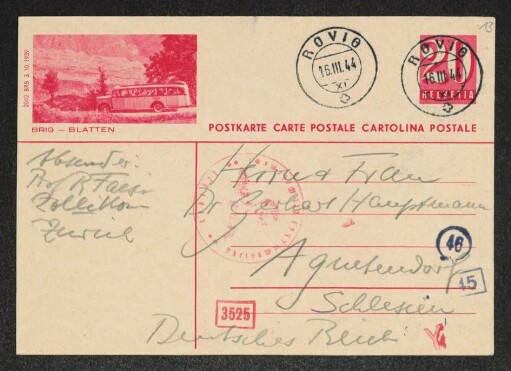 13
ROVIO
16.III.44
XI
ROVIO
16.III.44
20
HELVETIA
BRIG — BLATTEN
POSTKARTE CARTE POSTALE CARTOLINA POSTALE
Absender:
Prof R Faesi
Zollikon
Zürich
Herrn u Frau
Dr Gerhart Hauptmann
Agnetendorf
Schlesien
Deutsches Reich
46
15
3525